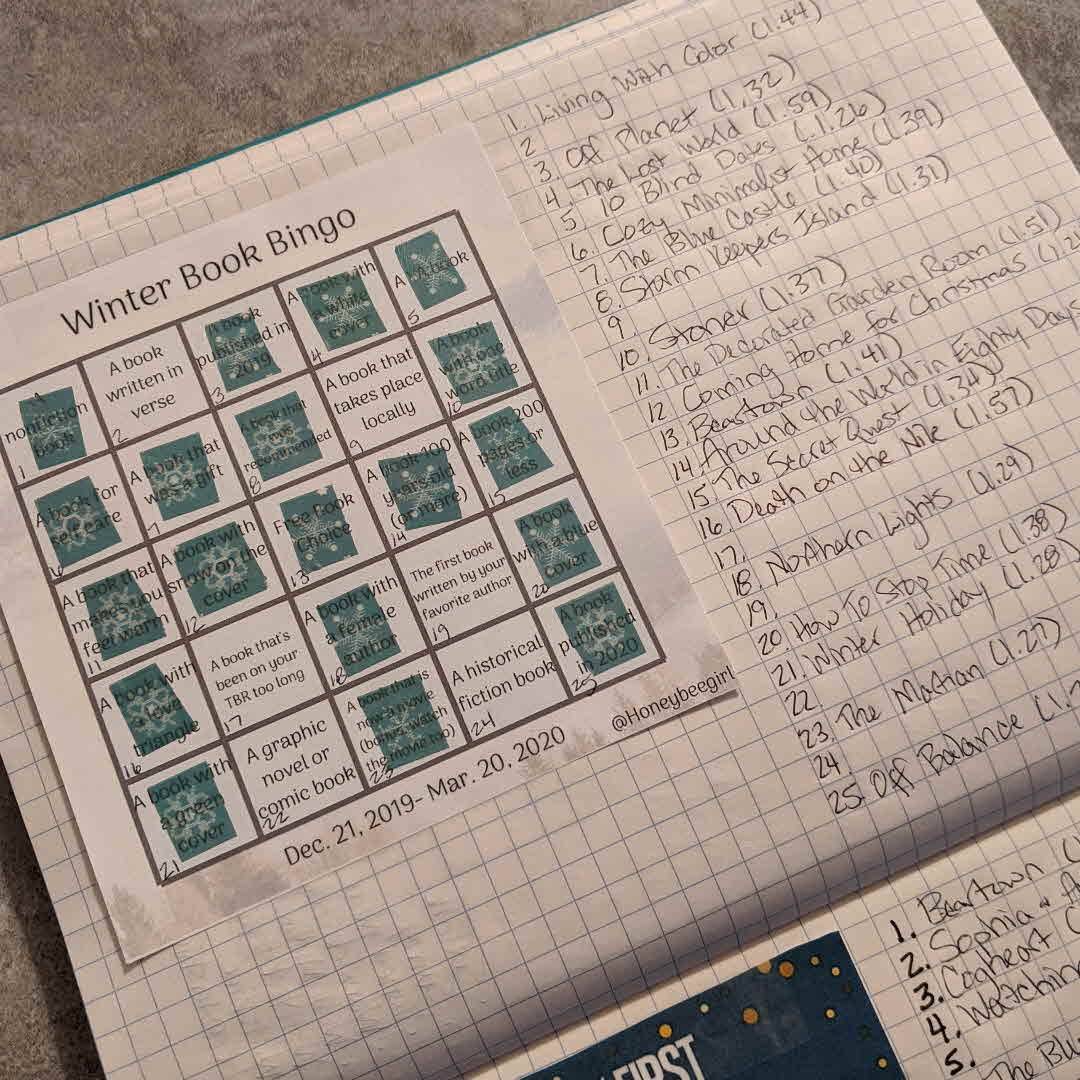 Winter Book Bingo
A
nonfiction
book
1
A book
written in
verse
2
A book
published in
2019
3
A book with
a white
cover
4
book
5
A book for
self care
6
A book that
was a gift
7
A book that
was
recommended
8
A book that
takes place
locally
9
A book
with one
word title
10
A book that
makes you
feel warm
11
A book with
snow on the
cover
12
Free Book
Choice
13
A book 100
years old
(or more)
14
A book 200
pages or
less
15
A book with
a love
triangle
16
A book that's
been on your
TBR too long
17
A book with
a female
author
18
The first book
written by your
favorite author
19
A book
with a blue
cover
20
A book with
a green
cover
21
A graphic
novel or
comic book
22
A book that is
now a movie
(bonus: watch
the movie too)
23
A historical
fiction book
24
A book
published
in 2020
25
Dec. 21, 2019- Mar. 20, 2020
@Honeybeegirl
1. Living With Color (1.44)
2
3. Off Planet (1.32)
4. The Lost World (1.59)
5 10 Blind Dates (1.26)
6. Cozy Minimalist Home (1.39)
7. The Blue Castle (1.40)
8. Storm Keepers Island (1.31)
9.
10. Stoner (1.37)
11. The Decorated Garden Room (1.51)
12 Coming Home for Christmas
13. Beartown (1.41)
14. Around the World in Eighty Days
15. The Secret Quest (1.34)
16. Death on the Nile (1.57)
17.
18. Northern Lights (1.29)
19.
20. How To Stop Time (1.38)
21. Winter Holiday (1.28)
22
23. The Martian (1.27)
24
25. Off Balance
1. Beartown
2. Sophia
3. Cogheart
4. Watching
5. The Blu
FIRST